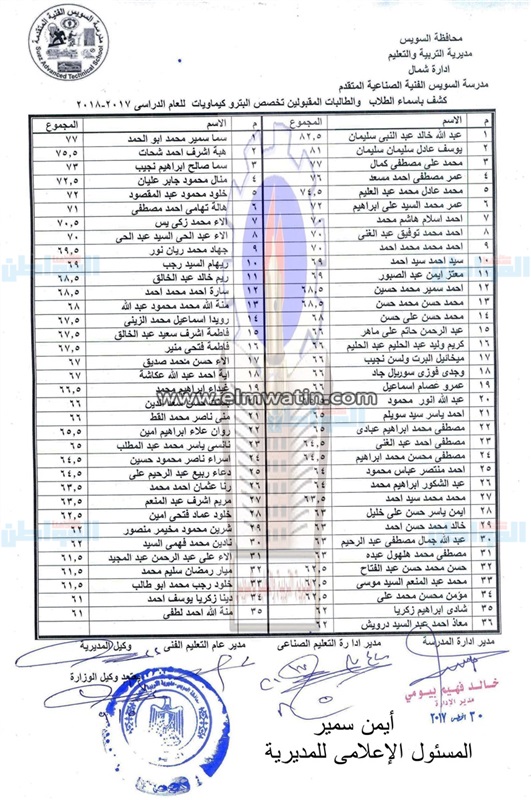 محافظة السويس
مديرية التربية والتعليم
ادارة شمال
مدرسة السويس الفنية الصناعية المتقدم
كشف باسماء الطلاب والطالبات المقبولين تخصص البترو كيماويات للعام الدراسى ٢٠١٧-٢٠١٨
م الاسم المجموع م الاسم المجموع
١ عبد الله خالد عبد النبي سليمان ٨٢,٥ ١ سما سمير محمد ابو الحمد ٧٧
٢ يوسف عادل سليمان سليمان ٨١ ٢ هبة اشرف احمد شحات ٧٥,٥
٣ محمد على مصطفى كمال ٧٧ ٣ سما صالح ابراهيم نجيب ٧٣
٤ عمر مصطفى احمد مسعد ٧٦ ٤ منال محمود جابر عليان ٧٢,٥
٥ محمد عادل محمد عبد العليم ٧٤,٥ ٥ خلود محمود عبد المقصود ٧٢
٦ عمر محمد السيد على ابراهيم ٧٢ ٦ هالة تهامى احمد مصطفى ٧١
٧ احمد اسلام هاشم محمد ٧ الاء محمد زكى يس ٧٠,٥
٨ احمد محمد توفيق عبد الغنى ٧٠ ٨ الاء عبد الحى السيد عبد الحى ٧٠
٩ احمد محمد محمد احمد ٧٠ ٩ جهاد محمد ريان نور ٦٩,٥
١٠ سيد احمد سيد احمد ٦٩ ١٠ ريهام السيد رجب ٦٩
١١ معتز ايمن عبد الصبور ٦٩ ١١ ريم خالد عبد الخالق ٦٨,٥
١٢ احمد سمير محمد حسين ٦٨,٥ ١٢ سارة احمد محمد احمد ٦٨,٥
١٣ محمد حسن محمد حسن ٦٨,٥ ١٣ منة الله محمد محمود عبد الله ٦٨
١٤ محمد حسن على حسن ٦٨ ١٤ رويدا اسماعيل محمد الزينى ٦٧,٥
١٥ عبد الرحمن حاتم على ماهر ١٥ فاطمة اشرف سعيد عبد الخالق ٦٧,٥
١٦ كريم وليد عبد الحليم عبد الحليم ٦٦ ١٦ فاطمة فتحى منير ٦٧,٥
١٧ ميخائيل البرت ولسن نجيب ٦٦ ١٧ الاء حسن محمد صديق ٦٧
١٨ وجدى فوزى سوريال جاد ٦٦ ١٨ اية احمد عبد الله عكاشة ٦٧
١٩ عمرو عصام اسماعيل ١٩ غيداء ابراهيم محمد ٦٦,٥
www.elmwatin.com
٢٠ عبد الله انور محمود
٢١ احمد ياسر سيد سويلم ٦٥ ٢١ منى ناصر محمد القط ٦٦
٢٢ مصطفى محمد ابراهيم عبادى ٦٥ ٢٢ روان علاء ابراهيم امين ٦٥,٥
٢٣ مصطفى احمد عبد الغنى ٦٤,٥ ٢٣ نانسى ياسر محمد عبد المطلب ٦٥
٢٤ مصطفى محسن محمد ابراهيم ٦٤,٥ ٢٤ اسراء ناصر محمود حسين ٦٤,٥
٢٥ احمد منتصر عباس محمود ٦٤ ٢٥ دعاء ربيع عبد الرحيم على ٦٤,٥
٢٦ عبد الشكور ابراهيم محمد ٦٤ ٢٦ رنا عثمان احمد محمد ٦٤
٢٧ محمد محمد سيد احمد ٦٣,٥ ٢٧ مريم اشرف عبد المنعم ٦٣,٥
٢٨ ايمن ياسر حسن على خليل ٦٣ ٢٨ خلود عماد فتحى امين ٦٣,٥
٢٩ خالد محمد حسن احمد ٦٣ ٢٩ شرين محمود مخيمر منصور ٦٢
٣٠ عبد الله جمال مصطفى عبد الرحيم ٦٣ ٣٠ نادين محمد فهمى السيد ٦٢
٣١ مصطفى محمد هلهول عبده ٦٣ ٣١ الاء على عبد الرحمن عبد المجيد ٦١,٥
٣٢ حسن محمد حسن عبد الفتاح ٦٢,٥ ٣٢ ميار رمضان سليم محمد ٦١,٥
٣٣ محمد عبد المنعم السيد موسى ٦٢,٥ ٣٣ خلود رجب محمد ابو طالب ٦١,٥
٣٤ مؤمن محسن محمد على ٦٢,٥ ٣٤ دينا زكريا يوسف احمد ٦١
٣٥ شادى ابراهيم زكريا ٦٢ ٣٥ منة الله احمد لطفى ٦١
٣٦ معاذ احمد عبد السيد درويش ٦٢
مدير ادارة المدرسة مدير ادارة التعليم الصناعى مدير عام التعليم الفنى وكيل المديرية
يعتمد وكيل الوزارة
خالد فهيم بيومى
مدير الإدارة
أيمن سمير
المسئول الإعلامى للمديرية